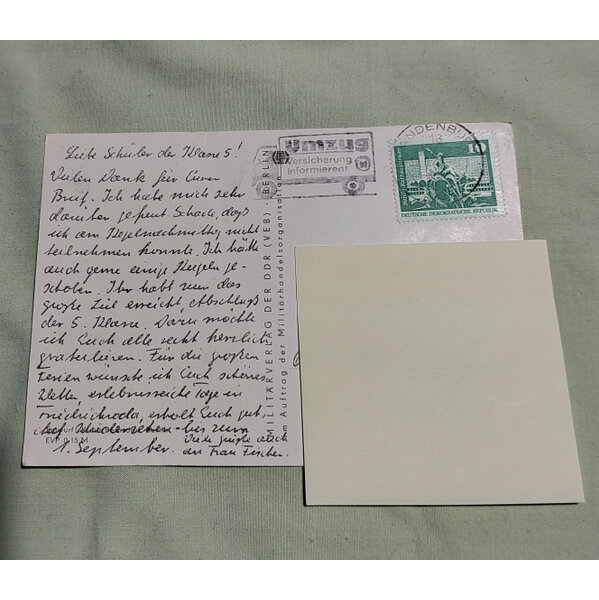 Liebe Schüler der Klasse 5!
Vielen Dank für Euren
Brief. Ich habe mich sehr
darüber gefreut. Schade, daß
ich am Kegelnachmittag nicht
teilnehmen konnte. Ich hätte
auch gerne einige Kugeln ge-
schoben. Ihr habt nun das
große Ziel erreicht, Abschluß
der 5. Klasse. Dazu möchte
ich Euch alle recht herzlich
gratulieren. Für die großen
Ferien wünsche ich Euch schönes
Wetter, erlebnisreiche Tage in
Friedrichroda, erholt Euch gut,
auf Wiedersehen bis zum
1. September. Viele Grüße auch
an Frau Fischer.
EVP 0,15 M
MILITÄRVERLAG DER DDR (VEB) · BERLIN
im Auftrag der Militärhandelsorganisation
Umzug
Versicherung
informieren!
NDENBU
13
10
DEUTSCHE DEMOKRATISCHE REPUBLIK